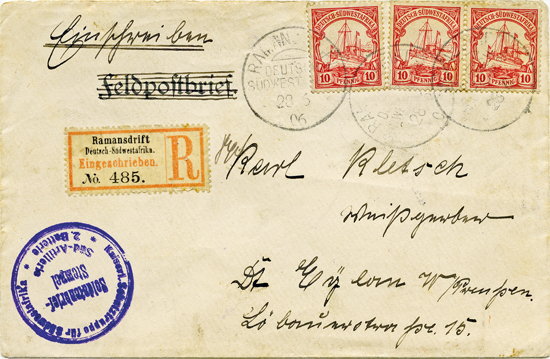 Einschreiben
Feldpostbrief.
DEUTSCH-SÜDWESTAFRIKA
10 PFENNIG 10
DEUTSCH-SÜDWESTAFRIKA
10 PFENNIG 10
DEUTSCH-SÜDWESTAFRIKA
10 PFENNIG 10
RAMAN
DEUTSCH
SÜDWEST
06
Ramansdrift
Deutsch-Südwestafrika.
Eingeschrieben.
No. 485.
R
Karl Kletsch
Weißgerber
Dt Eylau W Preußen.
Löbauerstraße 15.
Kaiserl. Schutztruppe für Südwestafrika
Soldatenbrief-
Stempel
Süd-Artillerie
2. Batterie